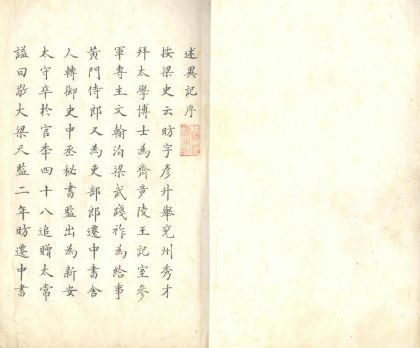 述異記序
按梁史云昉字彥升舉兖州秀才
拜太學博士為齊竟陵王記室參
軍專主文翰洎梁武踐祚為給事
黄門侍郎又為吏部郎遷中書舍
人轉御史中丞秘書監出為新安
太守卒於官年四十八追贈太常
謚曰敬大梁天監二年昉遷中書